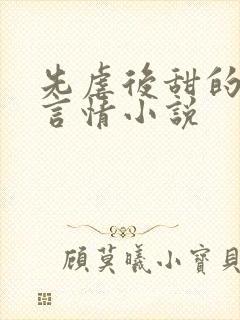 先虐後甜的
言情小說
顧莫曦小寶貝